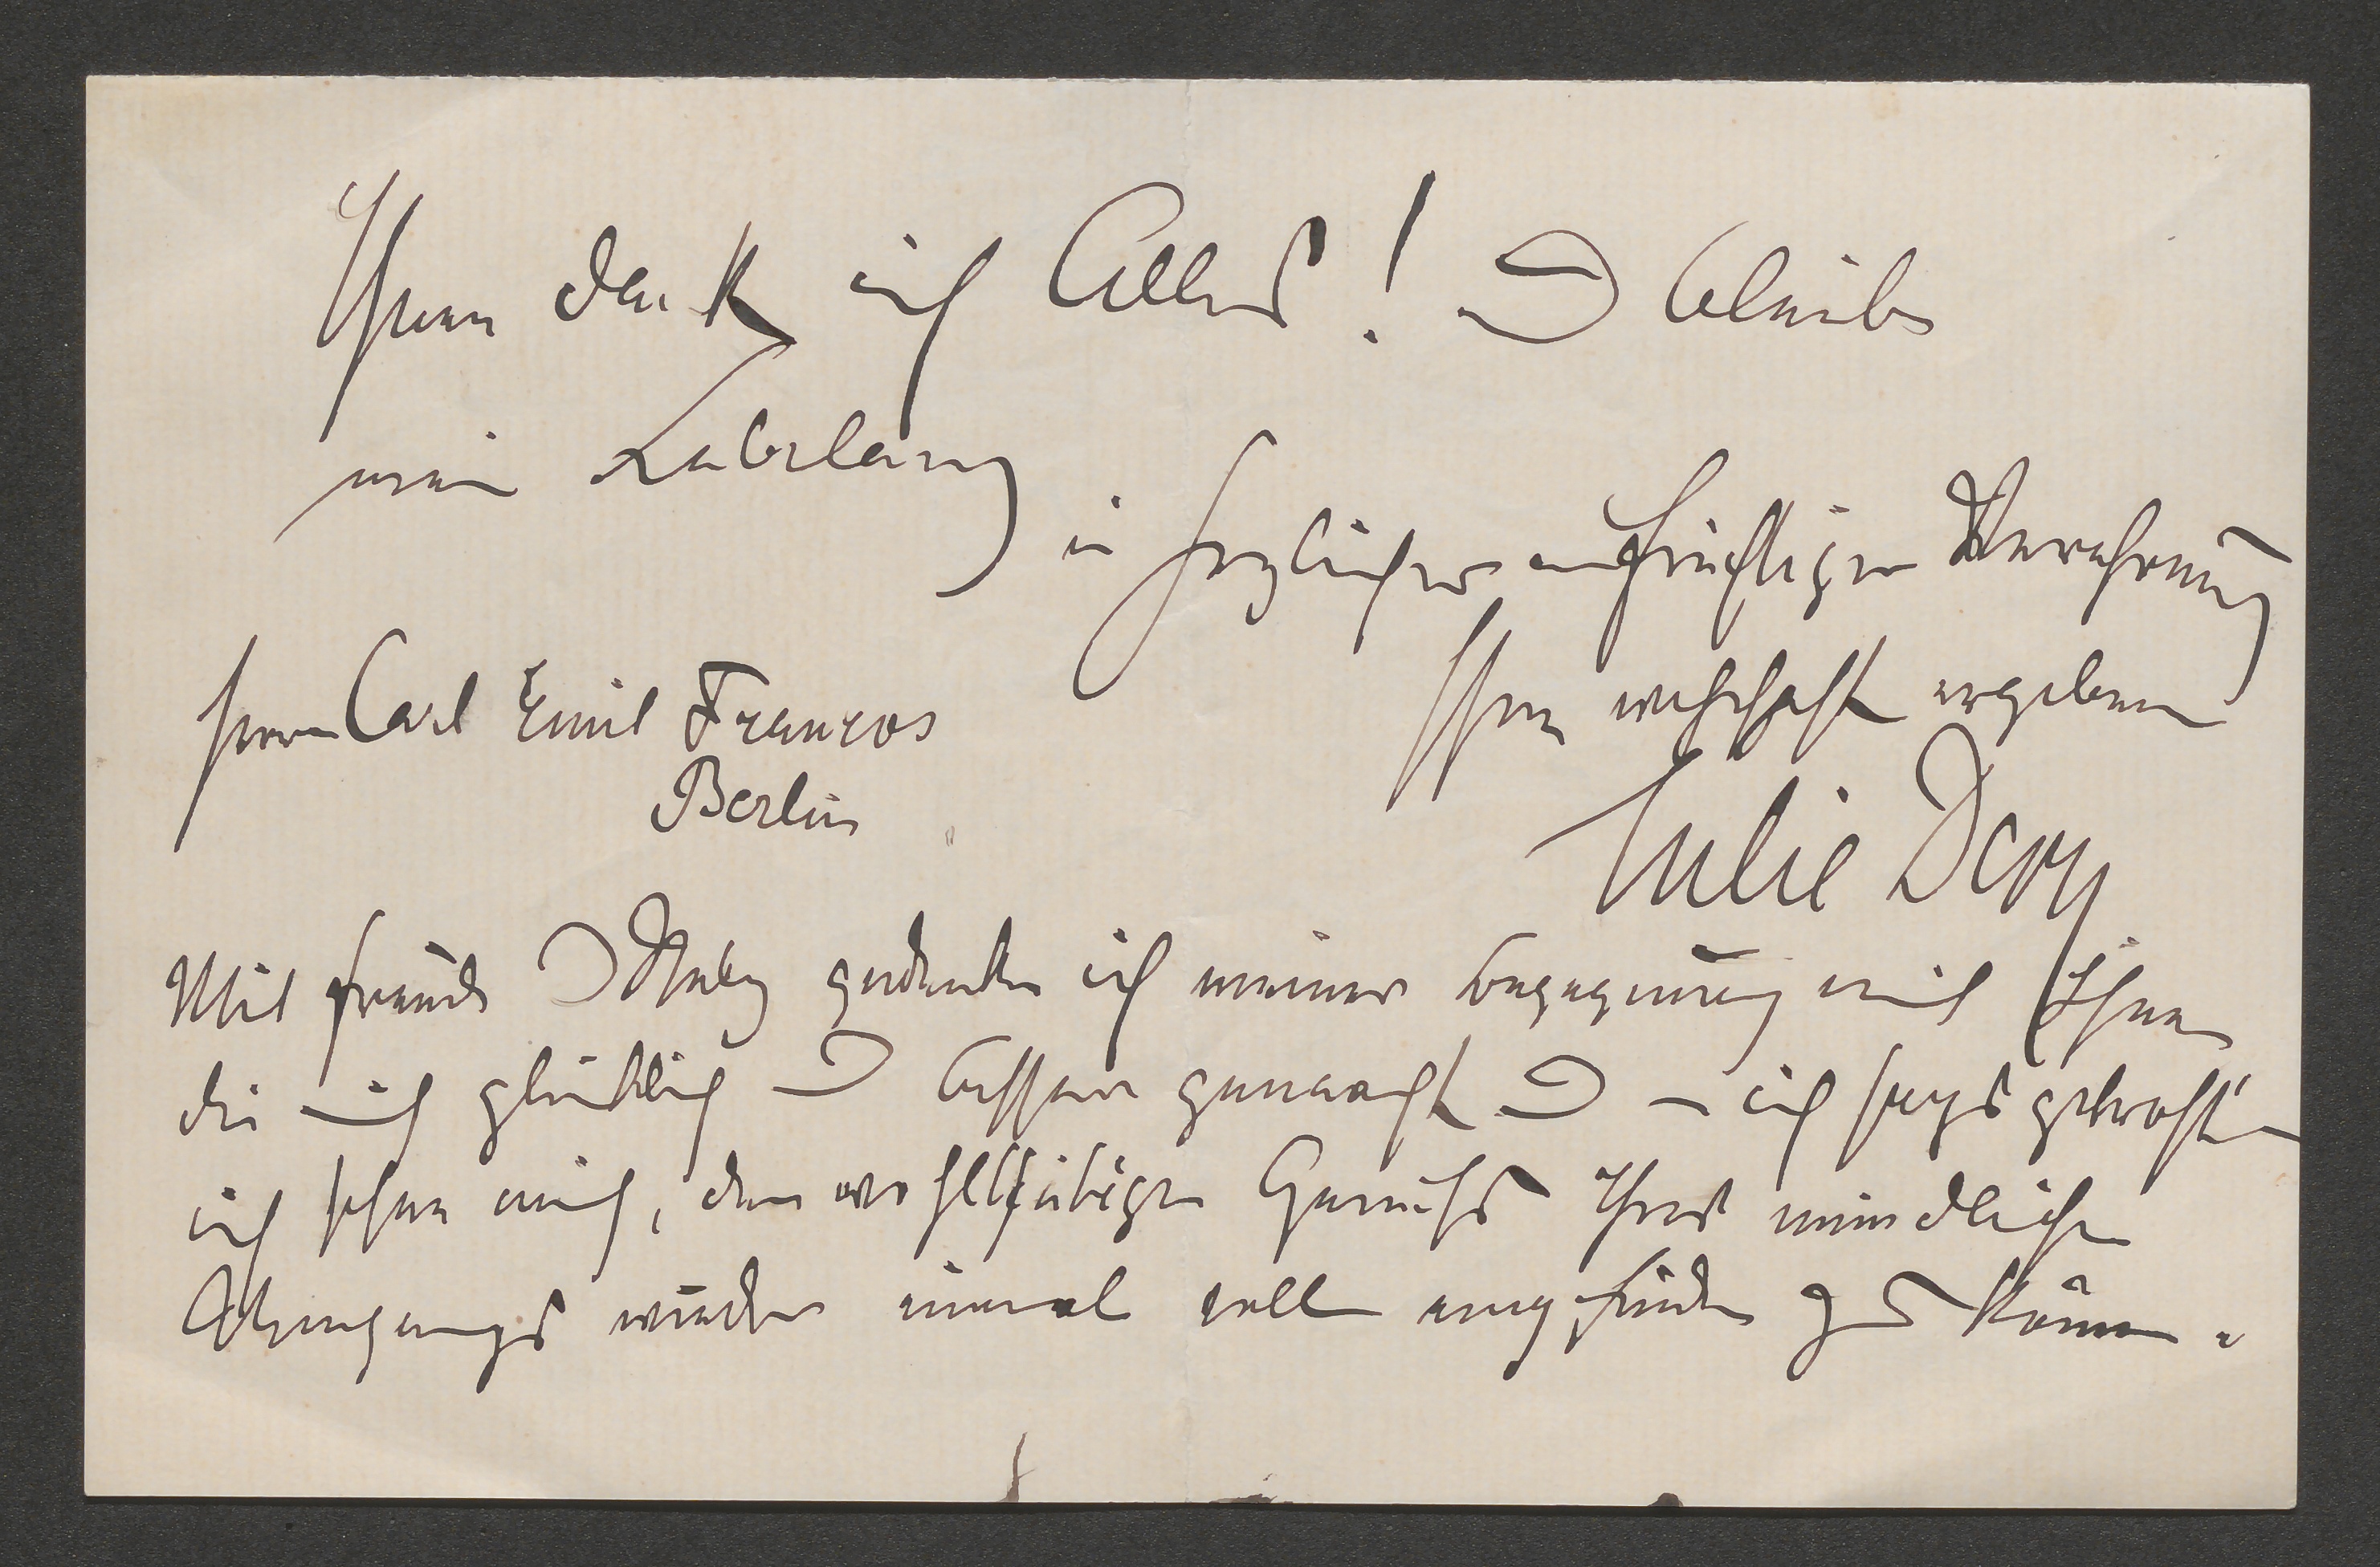 Ihnen dank ich Alles! u bleibe
mein Lebelang
in herzlicher aufrichtiger Verehrung
Ihnen wahrhaft ergeben
Julie Dery
Herrn Carl Emil Franzos
Berlin
Mit Freude u Stolz gedenke ich meiner Begegnung mit Ihnen
die mich glücklich u besser gemacht u – ich sag's getrost –
ich sehne mich, den Ihres mündlichen
wieder einmal voll empfinden zu können.